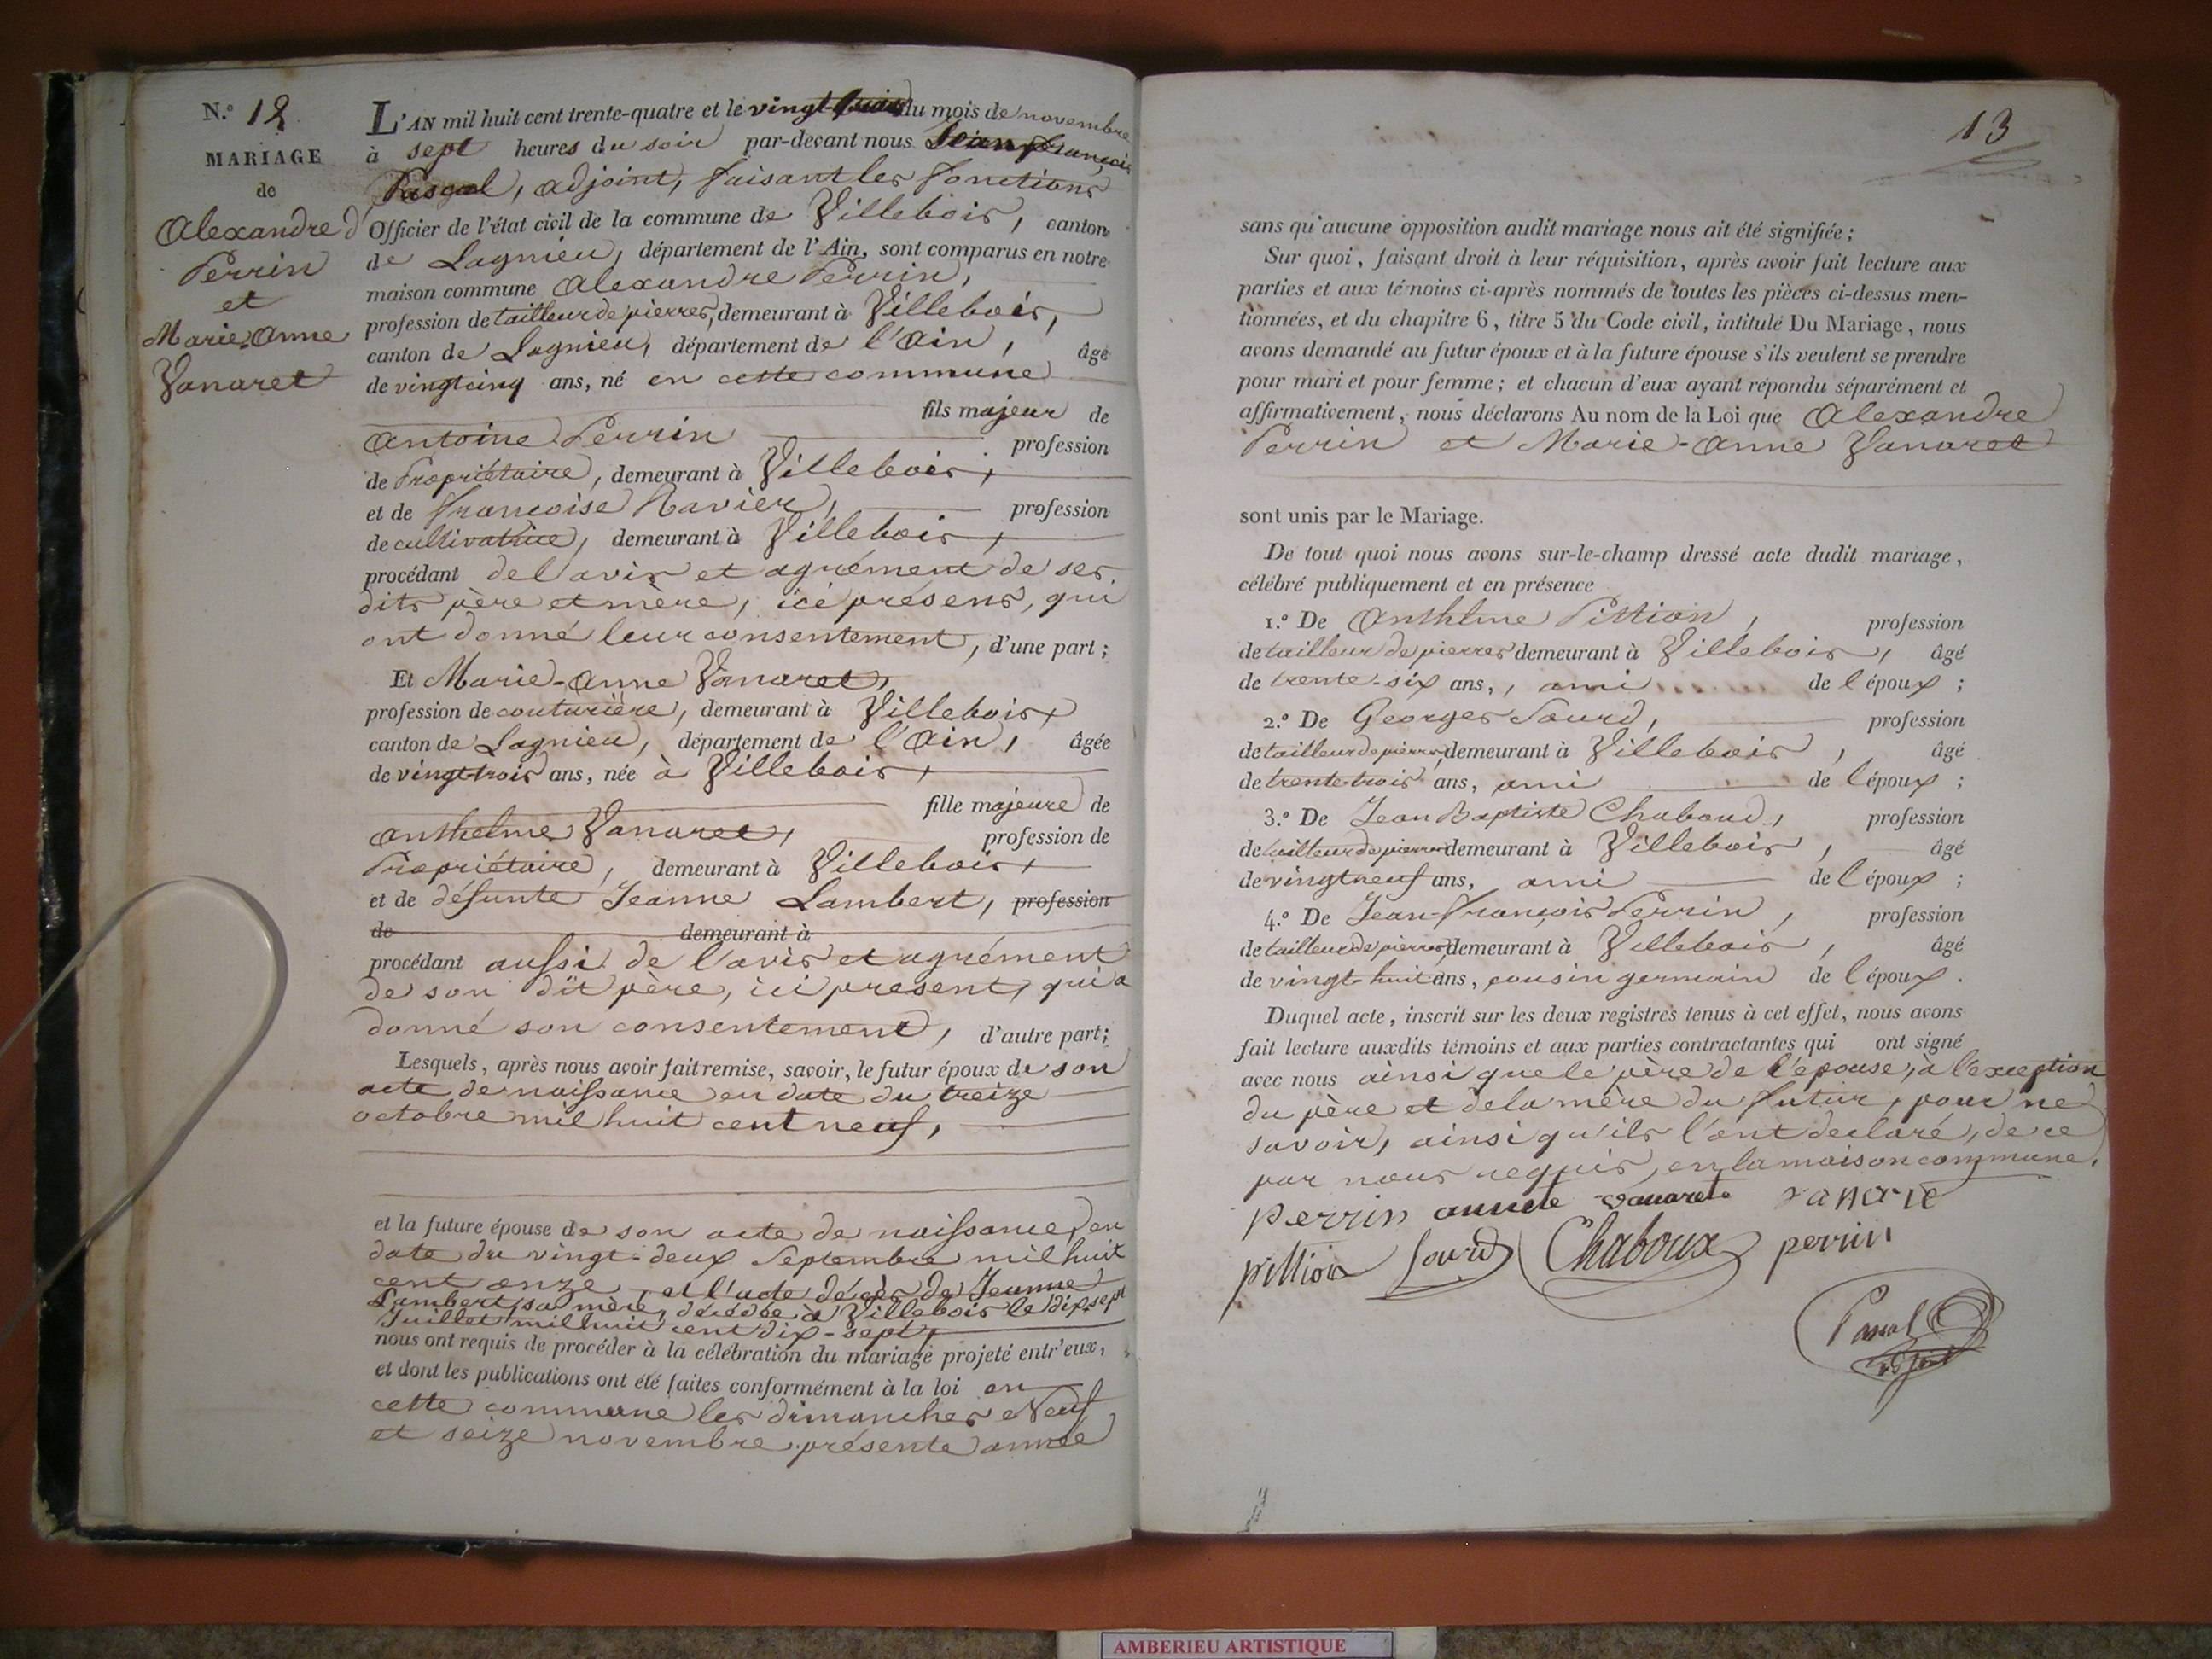 N.° 12
MARIAGE
de
Alexandre
Perrin
et
Marie-Anne
Vanaret
L'AN mil huit cent trente-quatre et le vingt du mois de novembre
à sept heures du soir par-devant nous Jean François
Pascal, adjoint, faisant les fonctions
d'Officier de l'état civil de la commune de Villebois, canton
de Lagnieu, département de l'Ain, sont comparus en notre
maison commune Alexandre Perrin,
profession de tailleur de pierres, demeurant à Villebois,
canton de Lagnieu, département de l'Ain, âgé
de vingt cinq ans, né en cette commune
fils majeur de
Antoine Perrin profession
de Propriétaire, demeurant à Villebois,
et de françoise Ravier, profession
de cultivatrice, demeurant à Villebois,
procédant de l'avis et agrément de ses
dits père et mère, ici présens, qui
ont donné leur consentement, d'une part;
Et Marie-Anne Vanaret,
profession de couturière, demeurant à Villebois,
canton de Lagnieu, département de l'Ain, âgée
de vingt-trois ans, née à Villebois,
fille majeure de
Anthelme Vanaret, profession de
Propriétaire, demeurant à Villebois,
et de défunte Jeanne Lambert, profession
de demeurant à
procédant aussi de l'avis et agrément
de son dit père, ici présent, qui a
donné son consentement, d'autre part;
Lesquels, après nous avoir fait remise, savoir, le futur époux de son
acte de naissance en date du treize
octobre mil huit cent neuf,
et la future épouse de son acte de naissance, en
date du vingt-deux Septembre mil huit
cent onze, et l'acte décès de Jeanne
Lambert, sa mère, décédée à Villebois le dix sept
Juillet mil huit cent dix-sept,
nous ont requis de procéder à la célébration du mariage projeté entr'eux,
et dont les publications ont été faites conformément à la loi en
cette commune les dimanches Neuf
et seize novembre présente année
13
sans qu'aucune opposition audit mariage nous ait été signifiée;
Sur quoi, faisant droit à leur réquisition, après avoir fait lecture aux
parties et aux témoins ci-après nommés de toutes les pièces ci-dessus men-
tionnées, et du chapitre 6, titre 5 du Code civil, intitulé Du Mariage, nous
avons demandé au futur époux et à la future épouse s'ils veulent se prendre
pour mari et pour femme; et chacun d'eux ayant répondu séparément et
affirmativement, nous déclarons Au nom de la Loi que Alexandre
Perrin et Marie-Anne Vanaret
sont unis par le Mariage.
De tout quoi nous avons sur-le-champ dressé acte dudit mariage,
célébré publiquement et en présence
1.° De Anthlme Pittion, profession
de tailleur de pierres demeurant à Villebois, âgé
de trente-six ans,, ami de l'époux;
2.° De Georges Sourd, profession
de tailleur de pierres, demeurant à Villebois, âgé
de trente-trois ans, ami de l'époux;
3.° De Jean Baptiste Chaboud, profession
de tailleur de pierres demeurant à Villebois, âgé
de vingt neuf ans, ami de l'époux;
4.° De Jean-françois Perrin, profession
de tailleur de pierres, demeurant à Villebois, âgé
de vingt-huit ans, cousin germain de l'époux.
Duquel acte, inscrit sur les deux registres tenus à cet effet, nous avons
fait lecture auxdits témoins et aux parties contractantes qui ont signé
avec nous ainsi que le père de l'épouse, à l'exception
du père et de la mère du futur, pour ne
savoir, ainsi qu'ils l'ont declaré, de ce
par nous requis, en la maison commune.
perrin annete vanaret
pittion Sourd Chaboux perrin
Pascal
adjoint
AMBERIEU ARTISTIQUE